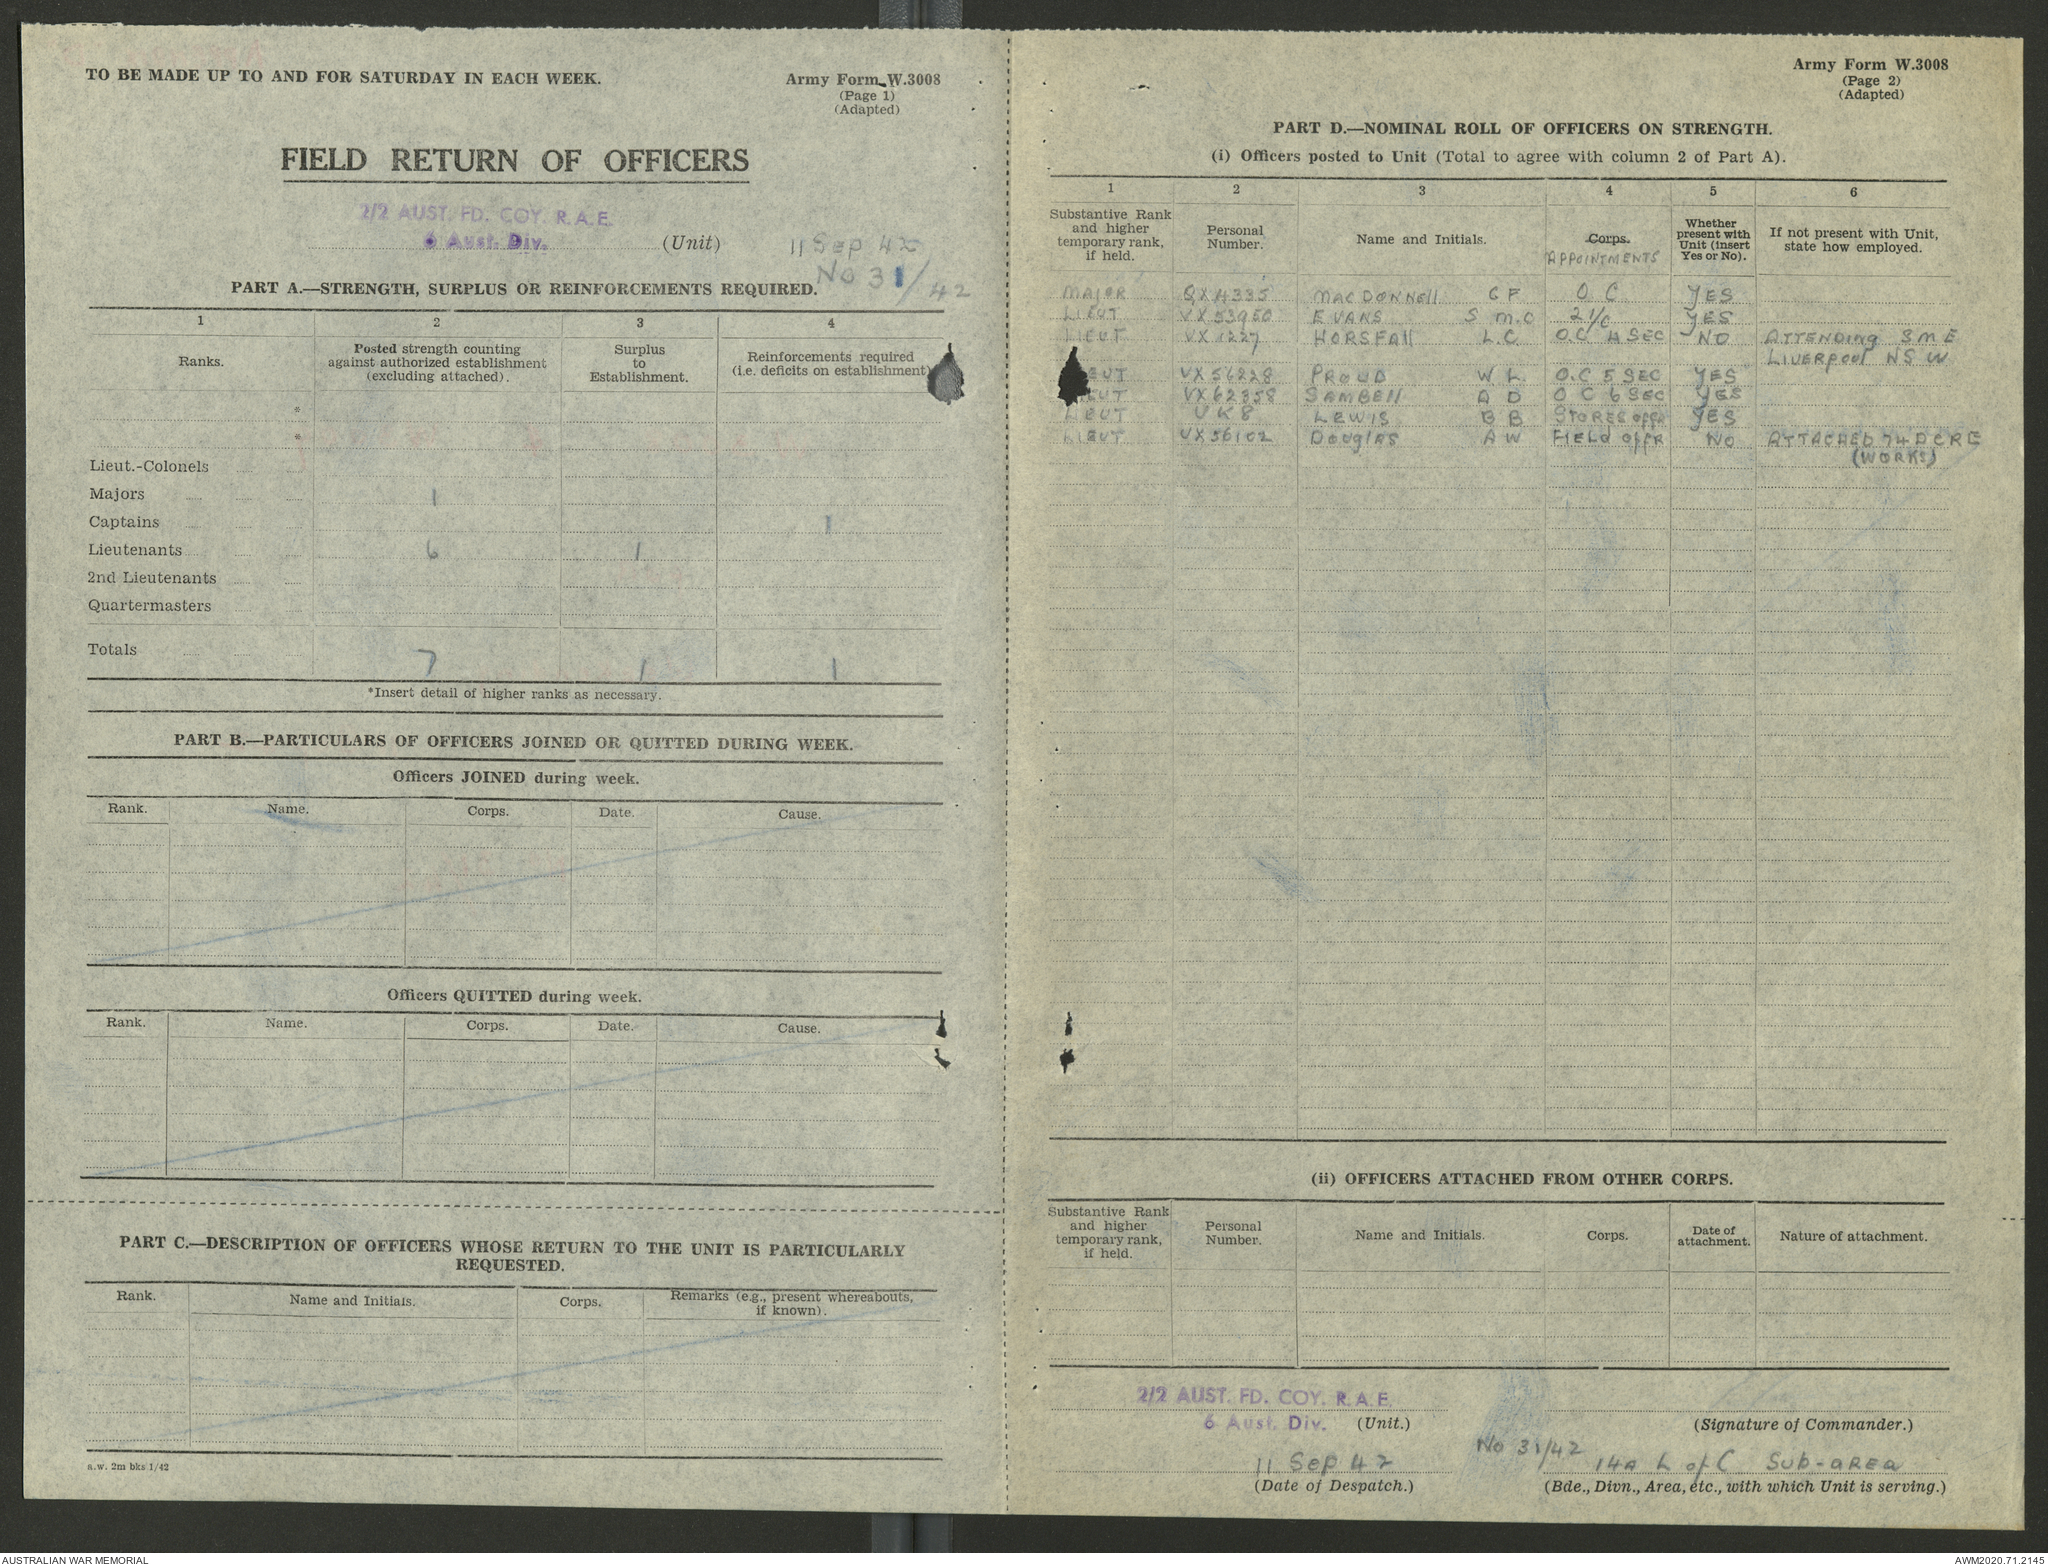 TO BE MADE UP TO AND FOR SATURDAY IN EACH WEEK.
Army Form W.3008
(Page 1)
(Adapted)
FIELD RETURN OF OFFICERS
2/2 AUST. FD. COY. R.A.E.
6 Aust. Div. (Unit)
11 Sep 42
No 31/42
PART A.—STRENGTH, SURPLUS OR REINFORCEMENTS REQUIRED.
1 2 3 4
Ranks.
Posted strength counting
against authorized establishment
(excluding attached).
Surplus
to
Establishment.
Reinforcements required
(i.e. deficits on establishment)
*
*
Lieut.-Colonels
Majors 1
Captains 1
Lieutenants 6 1
2nd Lieutenants
Quartermasters
Totals 7 1 1
*Insert detail of higher ranks as necessary.
PART B.—PARTICULARS OF OFFICERS JOINED OR QUITTED DURING WEEK.
Officers JOINED during week.
Rank. Name. Corps. Date. Cause.
Officers QUITTED during week.
Rank. Name. Corps. Date. Cause.
PART C.—DESCRIPTION OF OFFICERS WHOSE RETURN TO THE UNIT IS PARTICULARLY
REQUESTED.
Rank. Name and Initials. Corps.
Remarks (e.g., present whereabouts,
if known).
a.w. 2m bks 1/42
Army Form W.3008
(Page 2)
(Adapted)
PART D.—NOMINAL ROLL OF OFFICERS ON STRENGTH.
(i) Officers posted to Unit (Total to agree with column 2 of Part A).
1 2 3 4 5 6
Substantive Rank
and higher
temporary rank,
if held.
Personal
Number.
Name and Initials.
Corps.
APPOINTMENTS
Whether
present with
Unit (insert
Yes or No).
If not present with Unit,
state how employed.
MAJOR QX4335 MACDONNEll G F O C YES
LIEUT VX53950 EVANS S M.C 2 I/C YES
LIEUT VX1227 HORSFAll L.C. O.C 4 SEC NO ATTENDING S M E
LIVERPOOL N S W
LIEUT VX56228 PROUD W L. O.C 5 SEC YES
LIEUT VX62358 SAMBEll A D O C 6 SEC YES
LIEUT UK8 LEWIS B B STORES OFFR YES
LIEUT VX56102 DOUGLAS A W FIELD OFFR NO ATTACHED 74 DCRE
(WORKS)
(ii) OFFICERS ATTACHED FROM OTHER CORPS.
Substantive Rank
and higher
temporary rank,
if held.
Personal
Number.
Name and Initials.
Corps.
Date of
attachment.
Nature of attachment.
2/2 AUST. FD. COY. R.A.E.
6 Aust. Div. (Unit.)
(Signature of Commander.)
11 Sep 42
No 31/42
14A L of C Sub-area
(Date of Despatch.)
(Bde., Divn., Area, etc., with which Unit is serving.)
AUSTRALIAN WAR MEMORIAL
AWM2020.71.2145